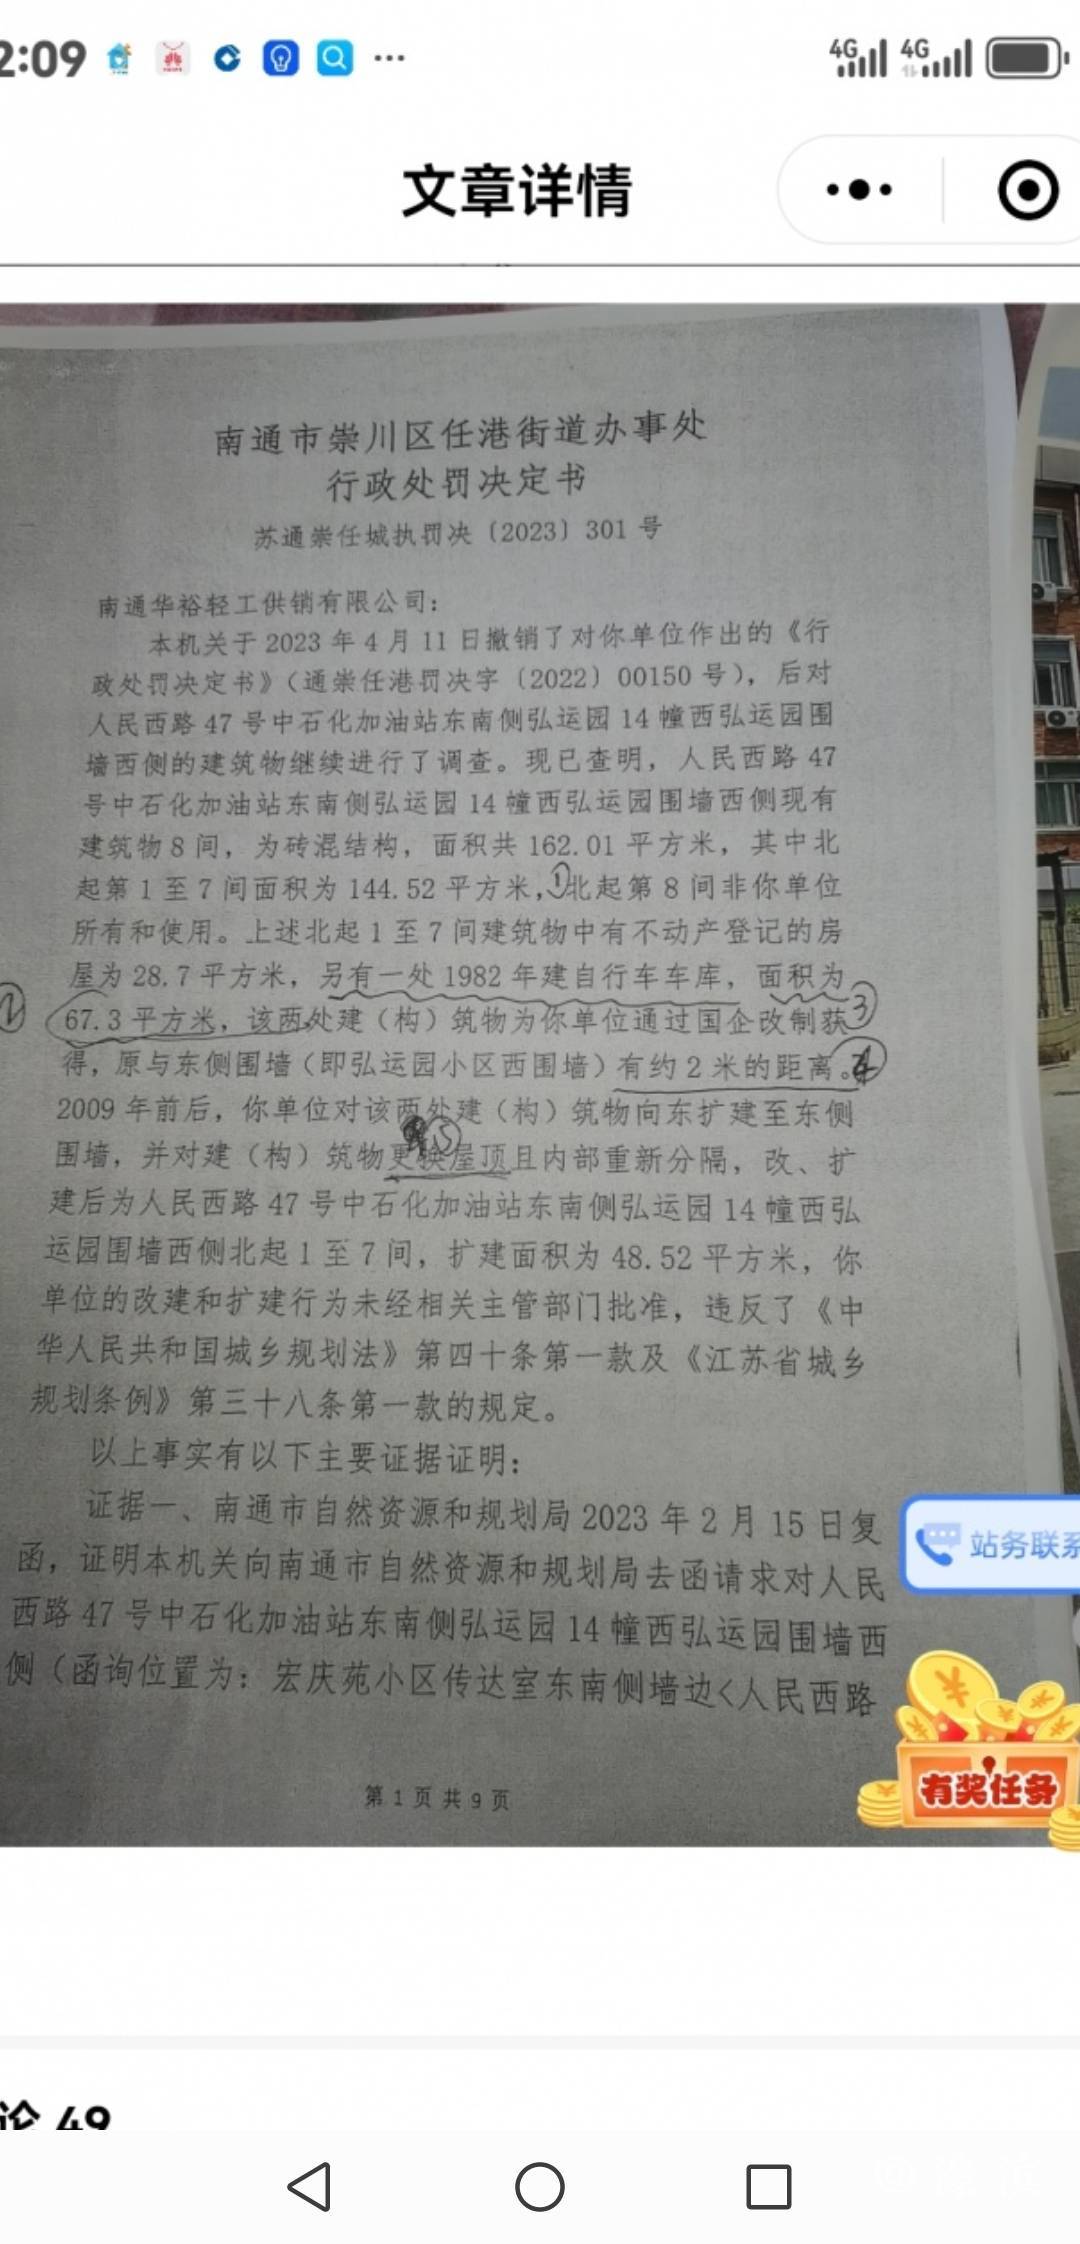 2:09
4G 4G
文章详情
南通市崇川区任港街道办事处
行政处罚决定书
苏通崇任城执罚决〔2023〕301 号
南通华裕轻工供销有限公司：
本机关于 2023 年 4 月 11 日撤销了对你单位作出的《行
政处罚决定书》（通崇任港罚决字〔2022〕00150 号），后对
人民西路 47 号中石化加油站东南侧弘运园 14 幢西弘运园围
墙西侧的建筑物继续进行了调查。现已查明，人民西路 47
号中石化加油站东南侧弘运园 14 幢西弘运园围墙西侧现有
建筑物 8 间，为砖混结构，面积共 162.01 平方米，其中北
起第 1 至 7 间面积为 144.52 平方米，①北起第 8 间非你单位
所有和使用。上述北起 1 至 7 间建筑物中有不动产登记的房
屋为 28.7 平方米，另有一处 1982 年建自行车车库，面积为
② 67.3 平方米，该两处建（构）筑物为你单位通过国企改制获③
得，原与东侧围墙（即弘运园小区西围墙）有约 2 米的距离。④
2009 年前后，你单位对该两处建（构）筑物向东扩建至东侧
⑤
围墙，并对建（构）筑物更换屋顶且内部重新分隔，改、扩
建后为人民西路 47 号中石化加油站东南侧弘运园 14 幢西弘
运园围墙西侧北起 1 至 7 间，扩建面积为 48.52 平方米，你
单位的改建和扩建行为未经相关主管部门批准，违反了《中
华人民共和国城乡规划法》第四十条第一款及《江苏省城乡
规划条例》第三十八条第一款的规定。
以上事实有以下主要证据证明：
证据一、南通市自然资源和规划局 2023 年 2 月 15 日复
函，证明本机关向南通市自然资源和规划局去函请求对人民
西路 47 号中石化加油站东南侧弘运园 14 幢西弘运园围墙西
侧（函询位置为：宏庆苑小区传达室东南侧墙边<人民西路
第 1 页 共 9 页
站务联系
有奖任务
论 49